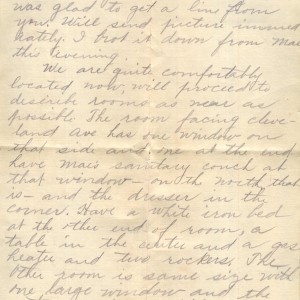 was glad to get a line from
you. Will send picture immed
iately. I brot it down from Mac
this evening.
We are quite comfortably
located now, will proceed to
describe rooms as near as
possible. The room facing cleve-
land Ave has one window on
that side and one at the end
have Mac's sanitary couch at
that window - on the north, that
is - and the dresser in the
corner. Have a white iron bed
at the other end of room, a
table in the center and a gas
heater and two rockers. The
other room is same size with
one large window and the